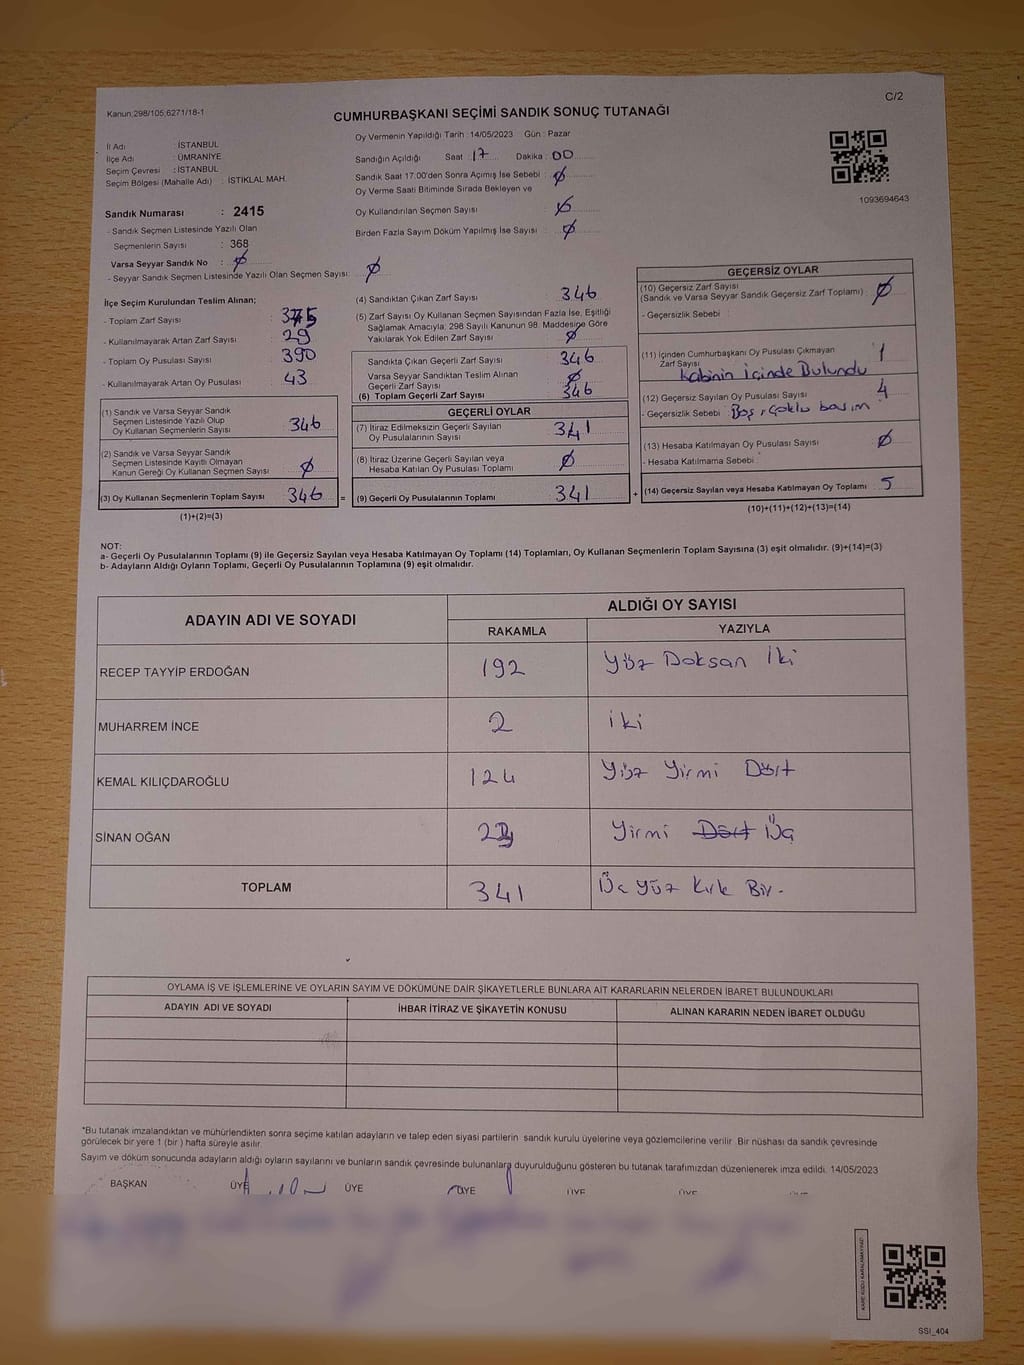 Kanun;298/105;6271/18-1
C/2
CUMHURBAŞKANI SEÇİMİ SANDIK SONUÇ TUTANAĞI
Oy Vermenin Yapıldığı Tarih :14/05/2023 Gün : Pazar
İl Adı : İSTANBUL
İlçe Adı : ÜMRANİYE
Seçim Çevresi : İSTANBUL
Seçim Bölgesi (Mahalle Adı) : İSTİKLAL MAH.
Sandığın Açıldığı Saat :17 Dakika :00
Sandık Saat 17.00'den Sonra Açımış İse Sebebi : Ø
Oy Verme Saati Bitiminde Sırada Bekleyen ve
Oy Kullandırılan Seçmen Sayısı Ø
Birden Fazla Sayım Döküm Yapılmış İse Sayısı : Ø
1093694643
Sandık Numarası : 2415
- Sandık Seçmen Listesinde Yazılı Olan
Seçmenlerin Sayısı : 368
Varsa Seyyar Sandık No : Ø
- Seyyar Sandık Seçmen Listesinde Yazılı Olan Seçmen Sayısı: Ø
İlçe Seçim Kurulundan Teslim Alınan;
- Toplam Zarf Sayısı 375
- Kullanılmayarak Artan Zarf Sayısı : 29
- Toplam Oy Pusulası Sayısı : 390
- Kullanılmayarak Artan Oy Pusulası : 43
(1) Sandık ve Varsa Seyyar Sandık
Seçmen Listesinde Yazılı Olup
Oy Kullanan Seçmenlerin Sayısı : 346
(2) Sandık ve Varsa Seyyar Sandık
Seçmen Listesinde Kayıtlı Olmayan
Kanun Gereği Oy Kullanan Seçmen Sayısı : Ø
(3) Oy Kullanan Seçmenlerin Toplam Sayısı : 346 =
(1)+(2)=(3)
(4) Sandıktan Çıkan Zarf Sayısı : 346
(5) Zarf Sayısı Oy Kullanan Seçmen Sayısından Fazla İse, Eşitliği
Sağlamak Amacıyla; 298 Sayılı Kanunun 98. Maddesine Göre
Yakılarak Yok Edilen Zarf Sayısı : Ø
Sandıkta Çıkan Geçerli Zarf Sayısı : 346
Varsa Seyyar Sandıktan Teslim Alınan
Geçerli Zarf Sayısı : Ø
(6) Toplam Geçerli Zarf Sayısı : 346
GEÇERLİ OYLAR
(7) İtiraz Edilmeksizin Geçerli Sayılan
Oy Pusulalarının Sayısı : 341
(8) İtiraz Üzerine Geçerli Sayılan veya
Hesaba Katılan Oy Pusulası Toplamı : Ø
(9) Geçerli Oy Pusulalarının Toplamı : 341 +
GEÇERSİZ OYLAR
(10) Geçersiz Zarf Sayısı
(Sandık ve Varsa Seyyar Sandık Geçersiz Zarf Toplamı) : Ø
- Geçersizlik Sebebi :
(11) İçinden Cumhurbaşkanı Oy Pusulası Çıkmayan
Zarf Sayısı : 1
Kabinin İçinde Bulundu
(12) Geçersiz Sayılan Oy Pusulası Sayısı : 4
- Geçersizlik Sebebi : Boş, çoklu basım
(13) Hesaba Katılmayan Oy Pusulası Sayısı : Ø
- Hesaba Katılmama Sebebi :
(14) Geçersiz Sayılan veya Hesaba Katılmayan Oy Toplamı : 5
(10)+(11)+(12)+(13)=(14)
NOT:
a- Geçerli Oy Pusulalarının Toplamı (9) ile Geçersiz Sayılan veya Hesaba Katılmayan Oy Toplamı (14) Toplamları, Oy Kullanan Seçmenlerin Toplam Sayısına (3) eşit olmalıdır. (9)+(14)=(3)
b- Adayların Aldığı Oyların Toplamı, Geçerli Oy Pusulalarının Toplamına (9) eşit olmalıdır.
ADAYIN ADI VE SOYADI ALDIĞI OY SAYISI
RAKAMLA YAZIYLA
RECEP TAYYİP ERDOĞAN 192 Yüz Doksan İki
MUHARREM İNCE 2 iki
KEMAL KILIÇDAROĞLU 124 Yüz Yirmi Dört
SİNAN OĞAN 23 Yirmi Dört Üç
TOPLAM 341 Üç yüz Kırk Bir.
OYLAMA İŞ VE İŞLEMLERİNE VE OYLARIN SAYIM VE DÖKÜMÜNE DAİR ŞİKAYETLERLE BUNLARA AİT KARARLARIN NELERDEN İBARET BULUNDUKLARI
ADAYIN ADI VE SOYADI İHBAR İTİRAZ VE ŞİKAYETİN KONUSU ALINAN KARARIN NEDEN İBARET OLDUĞU
*Bu tutanak imzalandıktan ve mühürlendikten sonra seçime katılan adayların ve talep eden siyasi partilerin sandık kurulu üyelerine veya gözlemcilerine verilir. Bir nüshası da sandık çevresinde
görülecek bir yere 1 (bir ) hafta süreyle asılır.
Sayım ve döküm sonucunda adayların aldığı oyların sayılarını ve bunların sandık çevresinde bulunanlara duyurulduğunu gösteren bu tutanak tarafımızdan düzenlenerek imza edildi. 14/05/2023
BAŞKAN ÜYE ÜYE ÜYE ÜYE ÜYE
KARE KODU KARALAMAYINIZ!
SSI_404